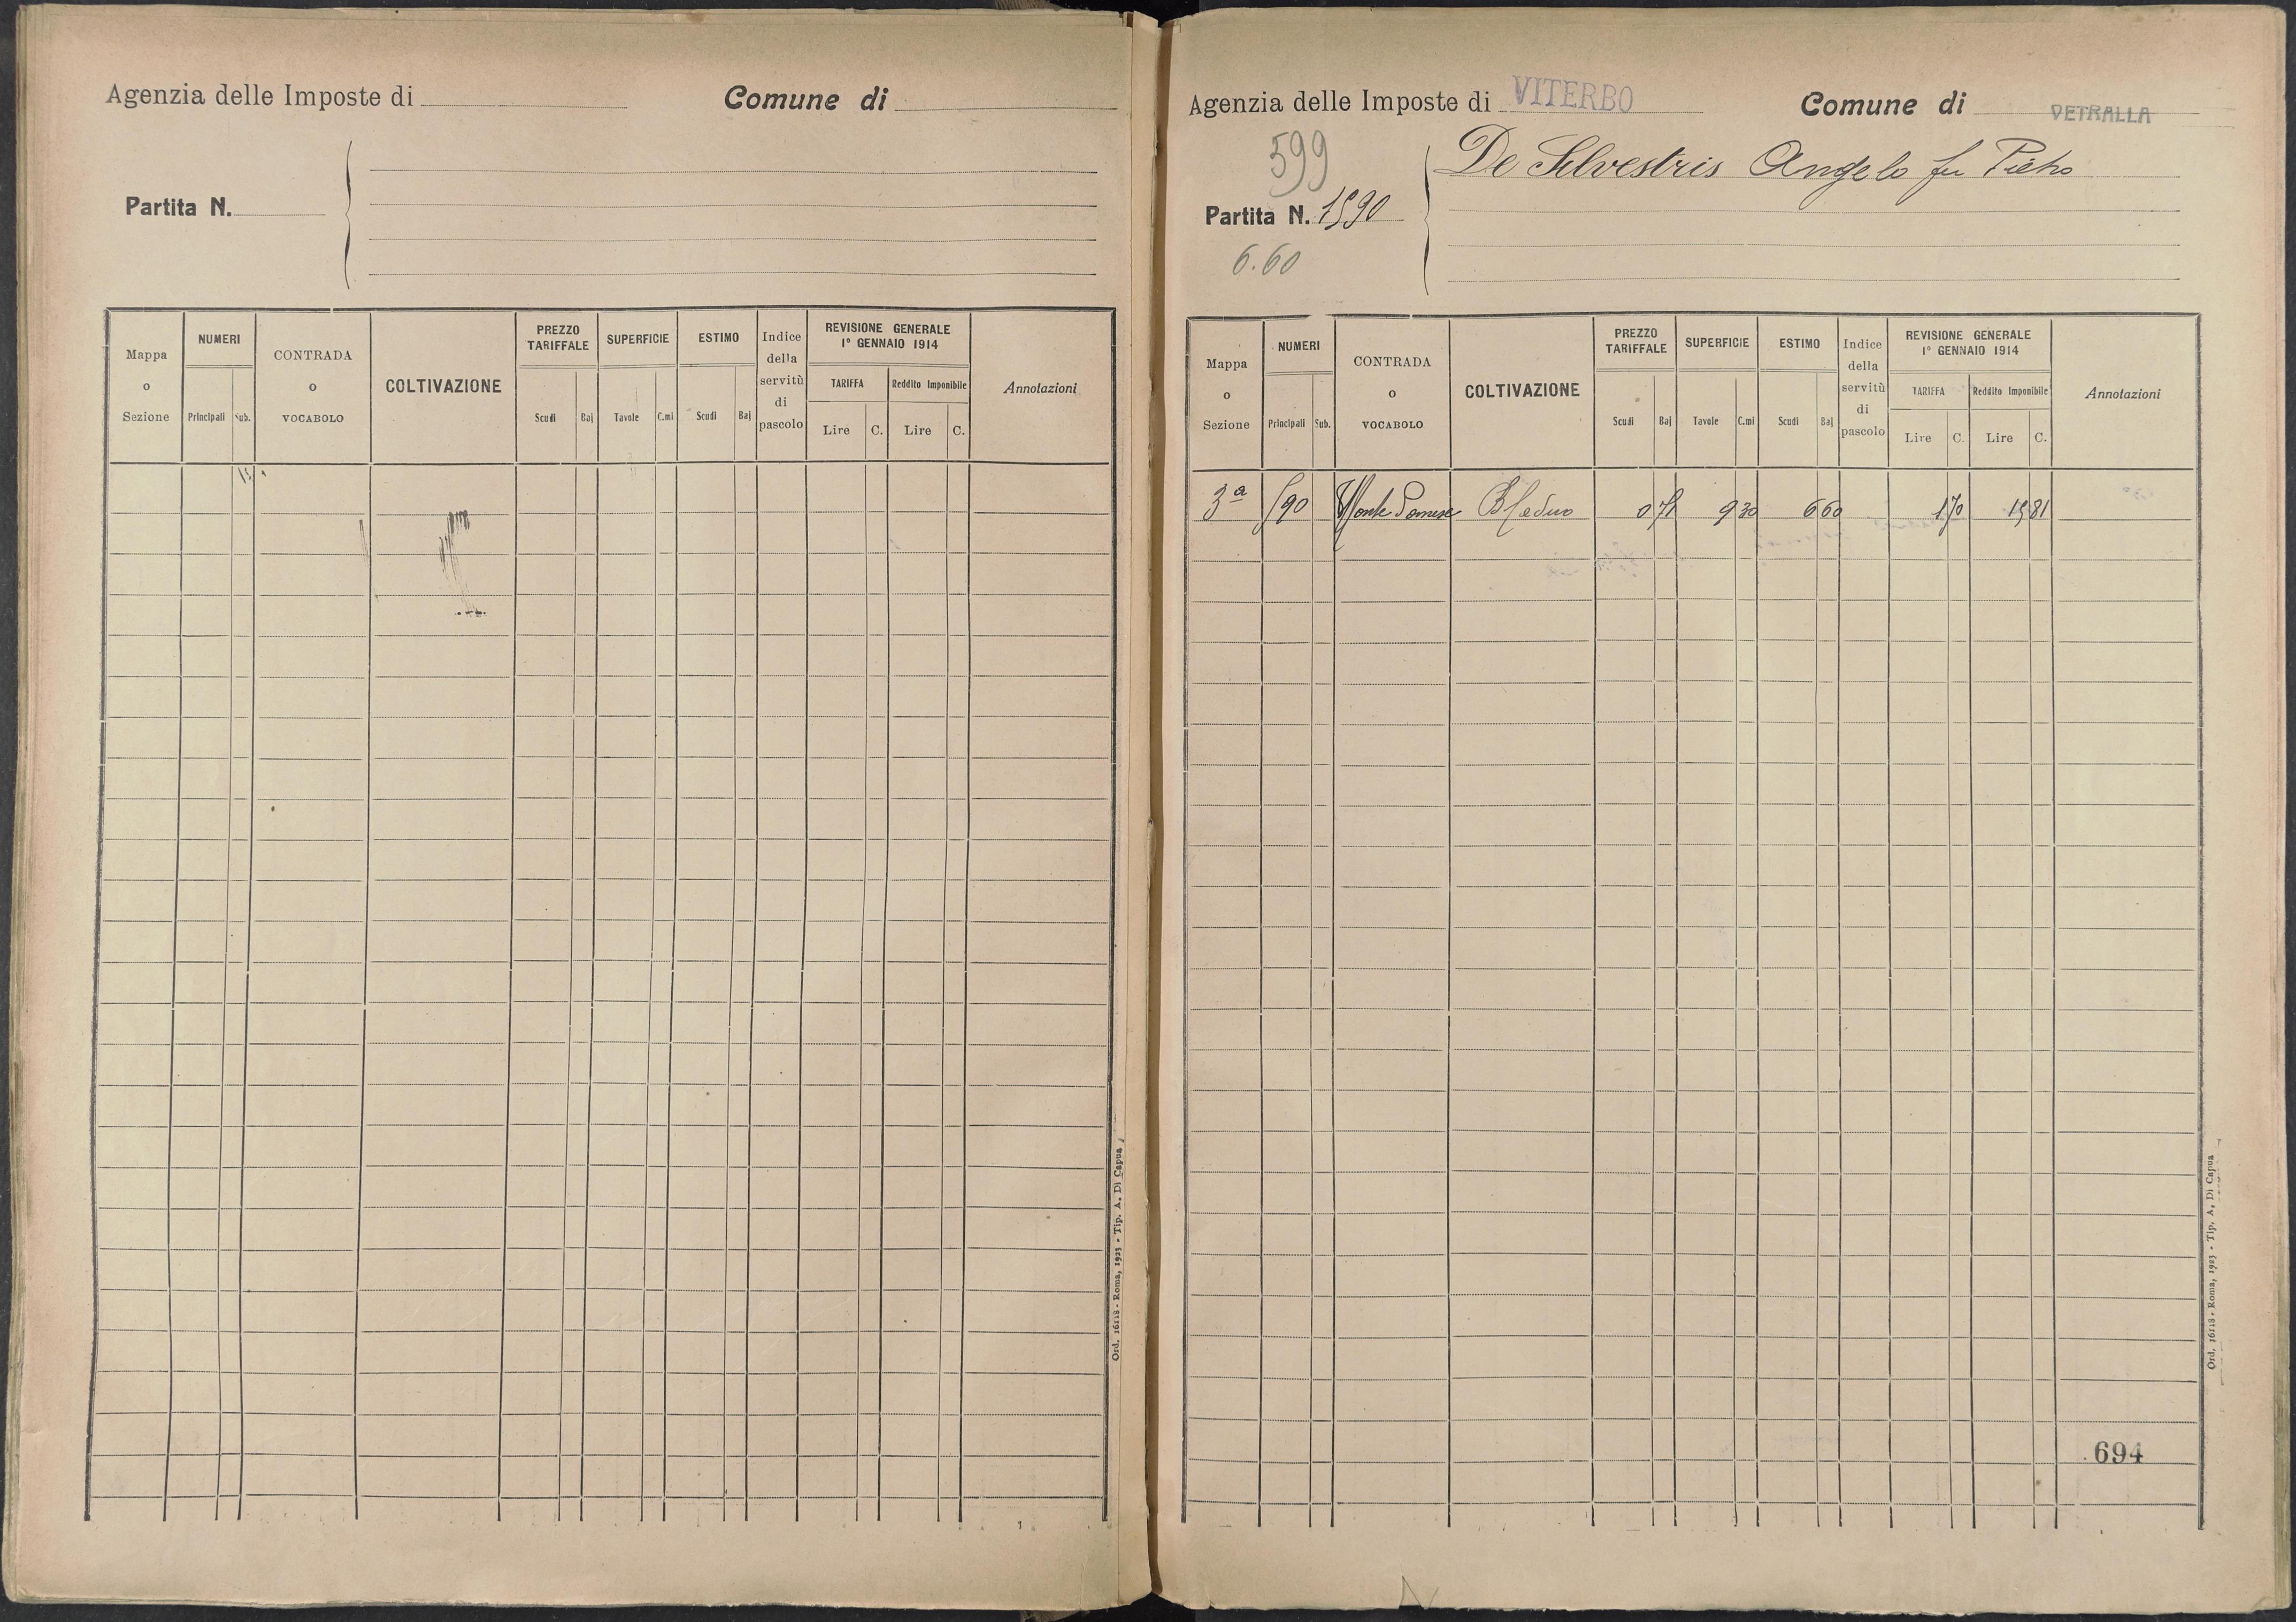 Agenzia delle Imposte di Comune di
Partita N.
Mappa o Sezione NUMERI Principali Sub. CONTRADA o VOCABOLO COLTIVAZIONE PREZZO TARIFFALE Scudi Baj SUPERFICIE Tavole C.mi ESTIMO Scudi Baj Indice della servitù di pascolo REVISIONE GENERALE 1° GENNAIO 1914 TARIFFA Lire C. Reddito Imponibile Lire C. Annotazioni
Ord. 16118 - Roma, 1923 - Tip. A. Di Capua
Agenzia delle Imposte di VITERBO Comune di VETRALLA
599
De Silvestris Angelo fu Pietro
Partita N. 1590
6.60
Mappa o Sezione NUMERI Principali Sub. CONTRADA o VOCABOLO COLTIVAZIONE PREZZO TARIFFALE Scudi Baj SUPERFICIE Tavole C.mi ESTIMO Scudi Baj Indice della servitù di pascolo REVISIONE GENERALE 1° GENNAIO 1914 TARIFFA Lire C. Reddito Imponibile Lire C. Annotazioni
3a 590 Monte Panese 0 71 9 30 6 60 1 70 15 81
694
Ord. 16118 - Roma, 1923 - Tip. A. Di Capua